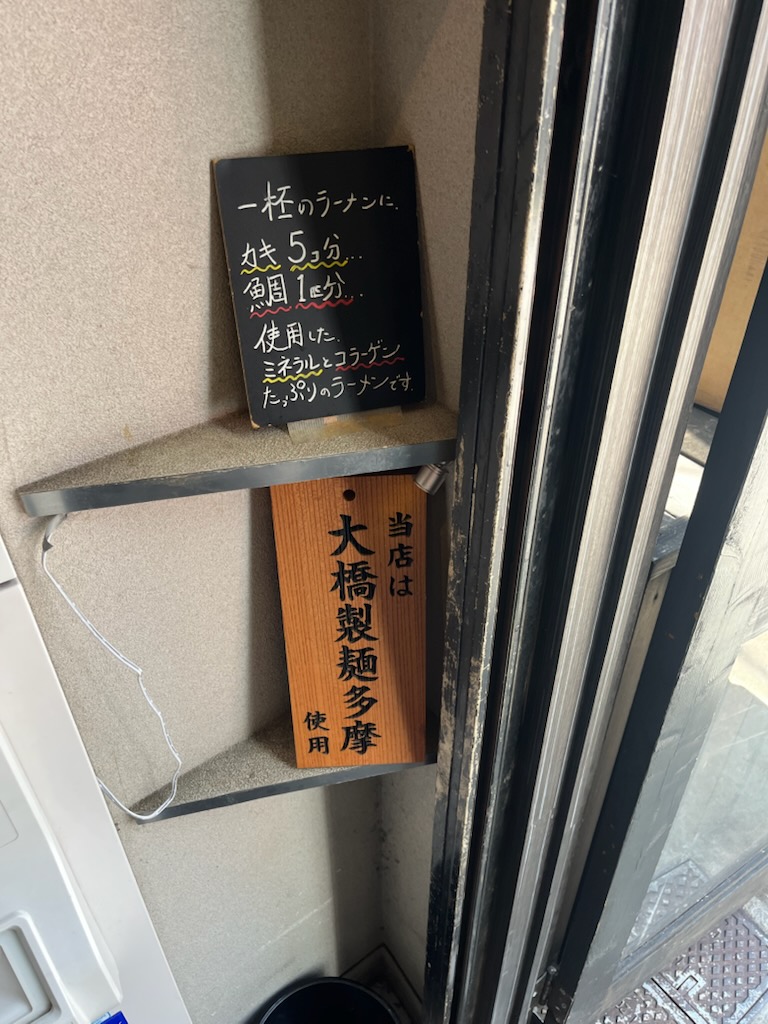 一杯のラーメンに、
カキ5コ分…
鯛1匹分…
使用した、
ミネラルとコラーゲン
たっぷりのラーメンです。
当店は
大橋製麺多摩
使用